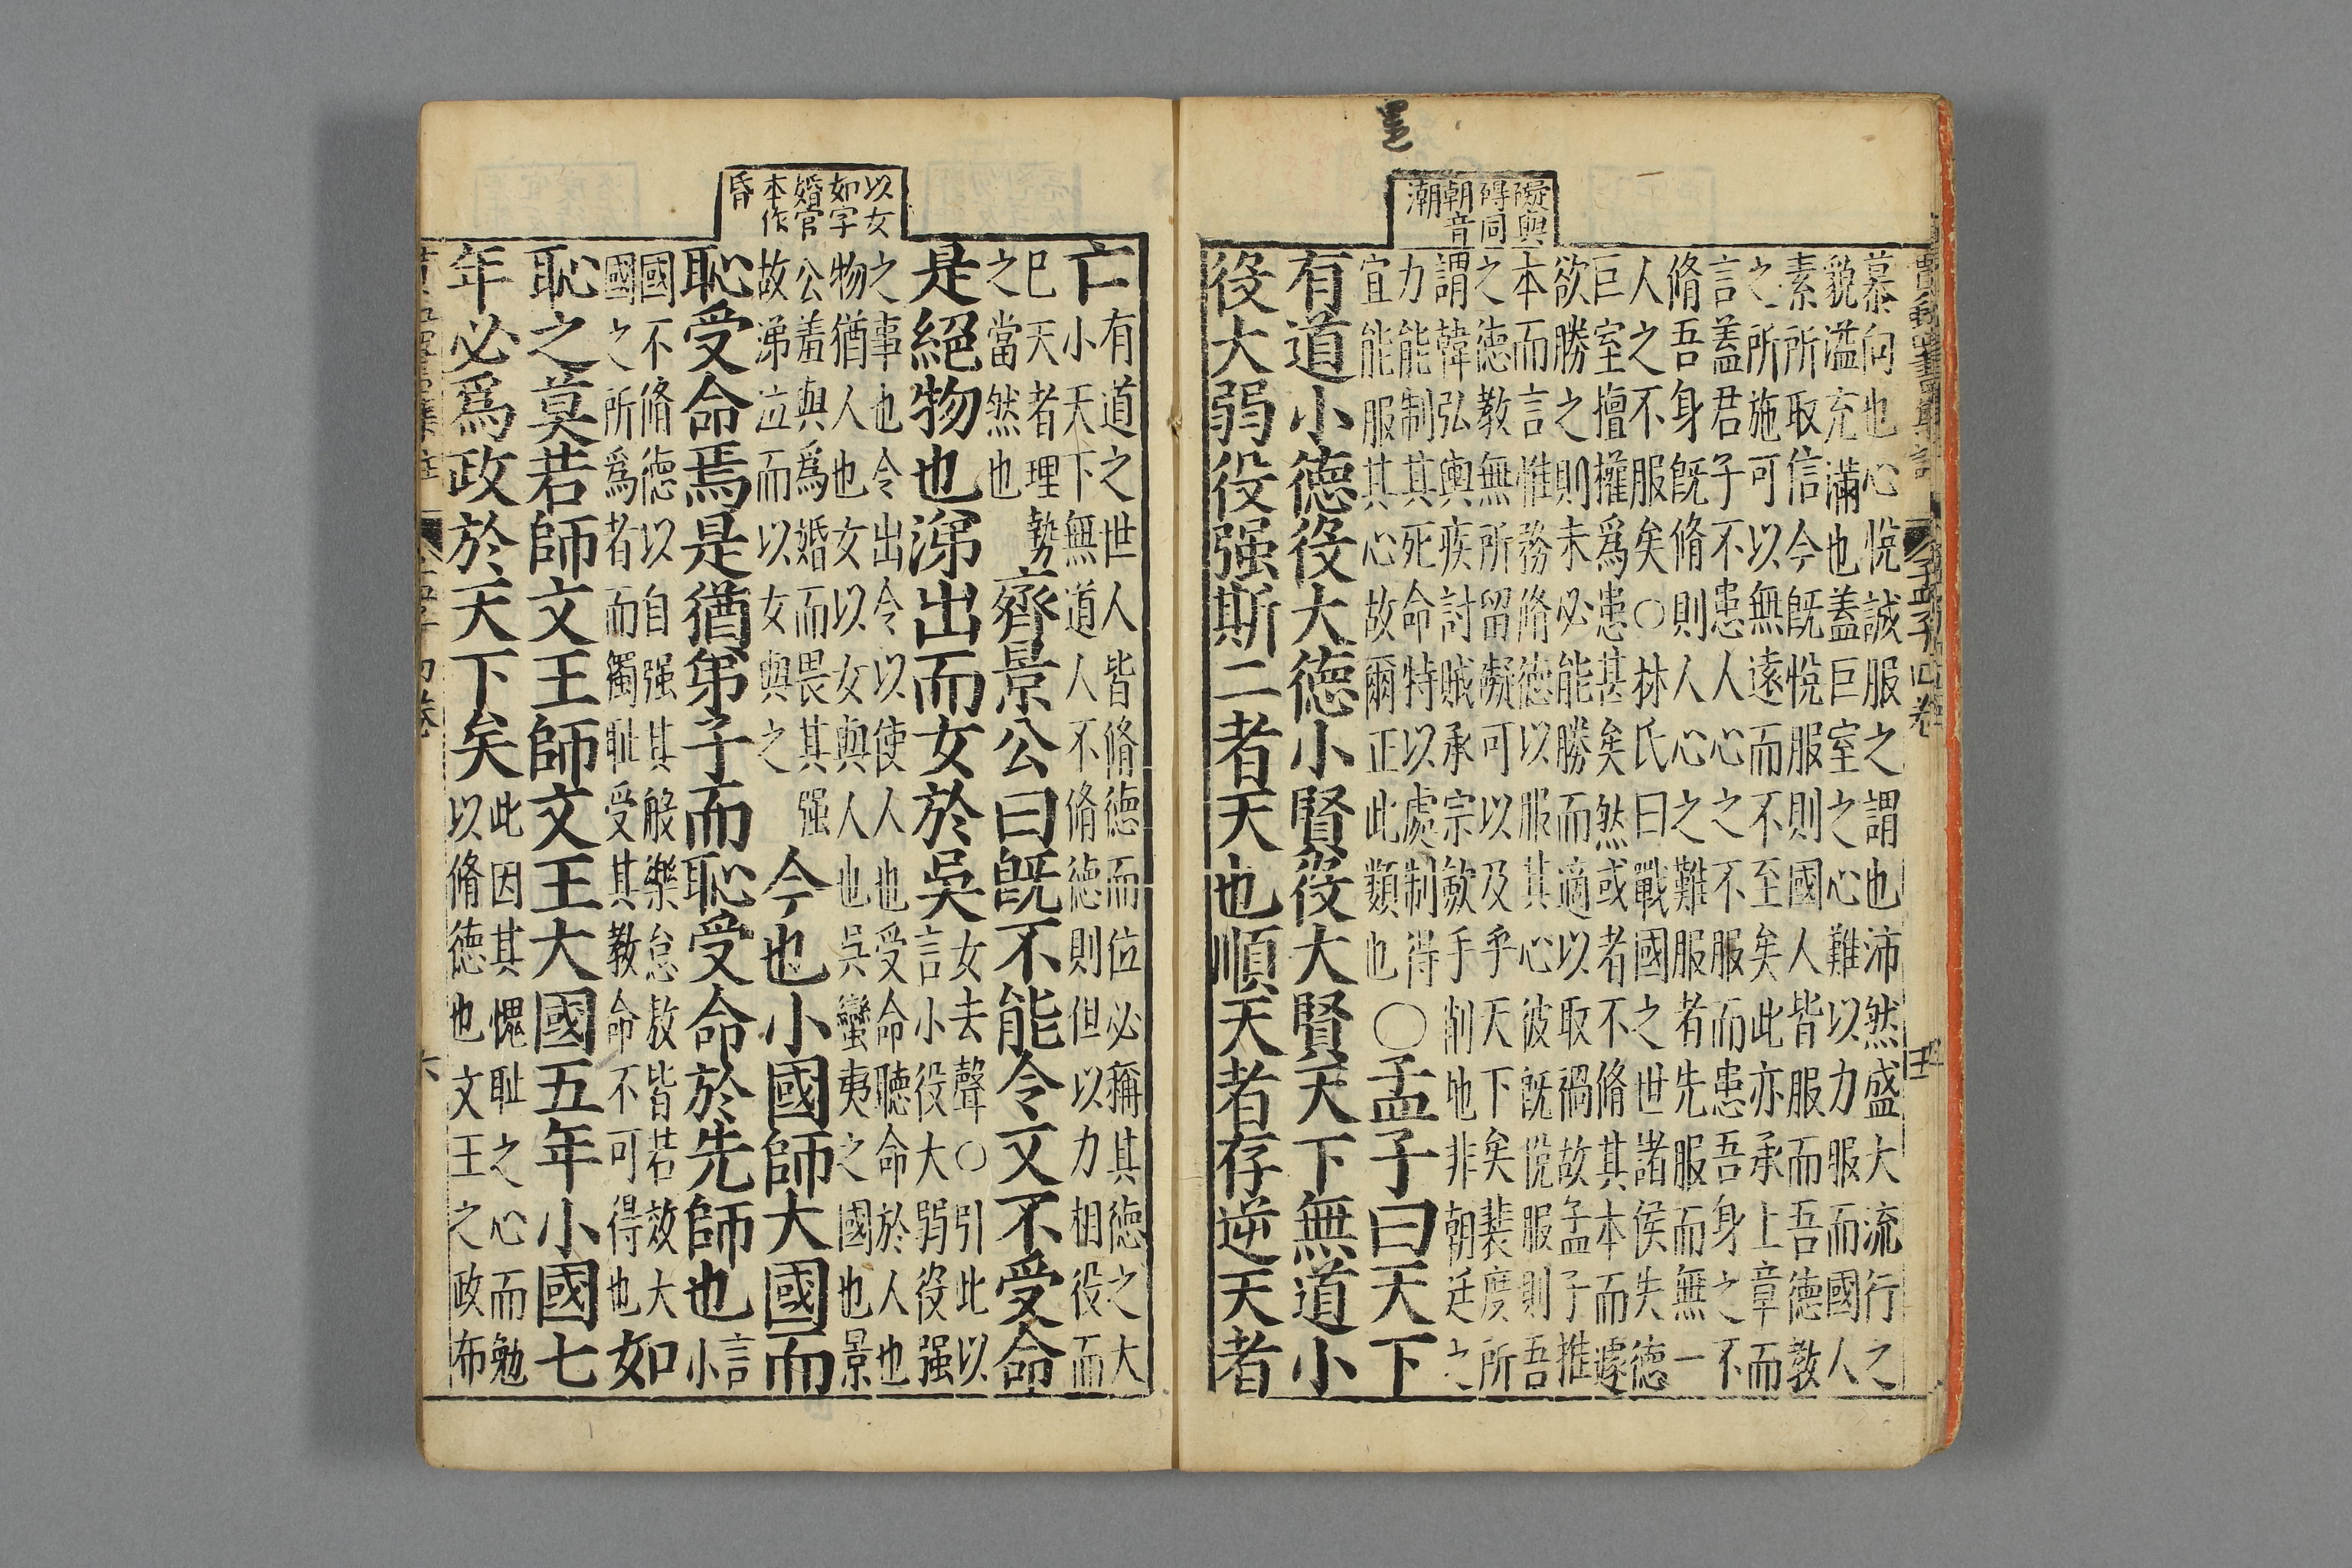 礙與
碍同
朝音
潮
孟子四卷
慕向也心悅誠服之謂也沛然盛大流行之
貌溢充滿也蓋巨室之心難以力服而國人
素所取信今既悅服則國人皆服而吾德教
之所施可以無遠而不至矣此亦承上章而
言蓋君子不患人心之不服而患吾身之不
脩吾身既脩則人心之難服者先服而無一
人之不服矣○林氏曰戰國之世諸侯失德
巨室擅權爲患甚矣然或者不脩其本而遽
欲勝之則未必能勝而適以取禍故孟子推
本而言惟務脩德以服其心彼既悅服則吾
之德教無所留礙可以及乎天下矣裴度所
謂韓弘輿疾討賊承宗歛手削地非朝廷之
力能制其死命特以處制得
宜能服其心故爾正此類也○孟子曰天下
有道小德役大德小賢役大賢天下無道小
役大弱役强斯二者天也順天者存逆天者
以女
如字
婚官
本作
昏
亡有道之世人皆脩德而位必稱其德之大
小天下無道人不脩德則但以力相役而
已天者理勢
之當然也齊景公曰既不能令又不受命
是絕物也涕出而女於吳女去聲○引此以
言小役大弱役强
之事也令出令以使人也受命聽命於人也
物猶人也女以女與人也吳蠻夷之國也景
公羞與爲婚而畏其强
故涕泣而以女與之今也小國師大國而
恥受命焉是猶弟子而恥受命於先師也言
小
國不脩德以自强其般樂怠敖皆若效大
國之所爲者而獨耻受其教命不可得也如
恥之莫若師文王師文王大國五年小國七
年必爲政於天下矣此因其愧耻之心而勉
以脩德也文王之政布
六